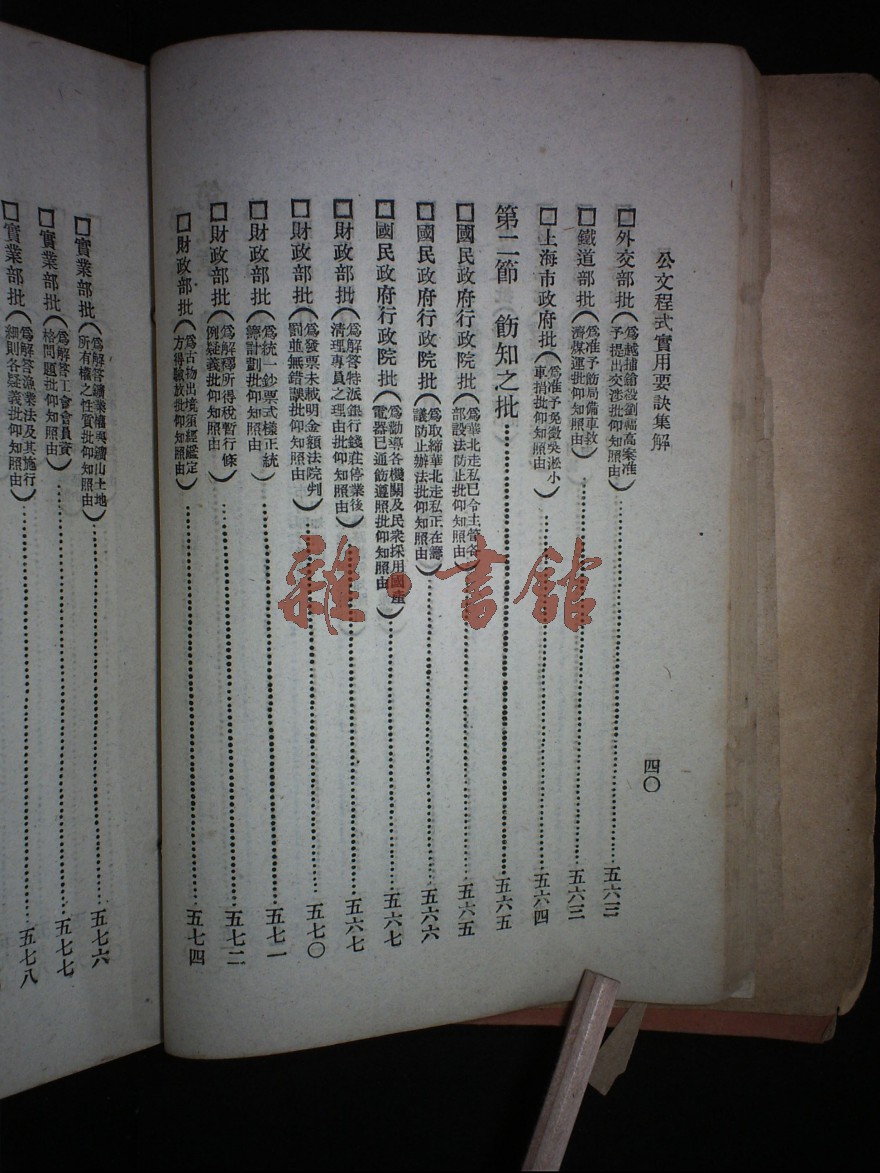 公文程式實用要訣集解
四〇
□外交部批(爲越捕鎗殺劉福高案准予提出交涉批仰知照由)……五六三
□鐵道部批(爲准予飭局備車救濟煤運批仰知照由)……五六三
□上海市政府批(爲准予免徵吳淞小車捐批仰知照由)……五六四
第二節 飭知之批……五六五
□國民政府行政院批(爲華北走私已令主管各部設法防止批仰知照由)……五六五
□國民政府行政院批(爲取締華北走私正在籌議防止辦法批仰知照由)……五六六
□國民政府行政院批(爲勸導各機關及民衆採用國產電器已通飭遵照批仰知照由)……五六七
□財政部批(爲解答特派銀行錢莊停業後清理專員之理由批仰知照由)……五六七
□財政部批(爲發票未載明金額法院判罰並無錯誤批仰知照由)……五七〇
□財政部批(爲統一鈔票式樣正統籌計劃批仰知照由)……五七一
□財政部批(爲解釋所得稅暫行條例疑義批仰知照由)……五七二
□財政部批(爲古物出境須經鑑定方得驗放批仰知照由)……五七四
□實業部批(爲解答鑛業權與鑛山土地所有權之性質批仰知照由)……五七六
□實業部批(爲解答工會會員資格問題批仰知照由)……五七七
□實業部批(爲解答漁業法及其施行細則各疑義批仰知照由)……五七八
雜·書館